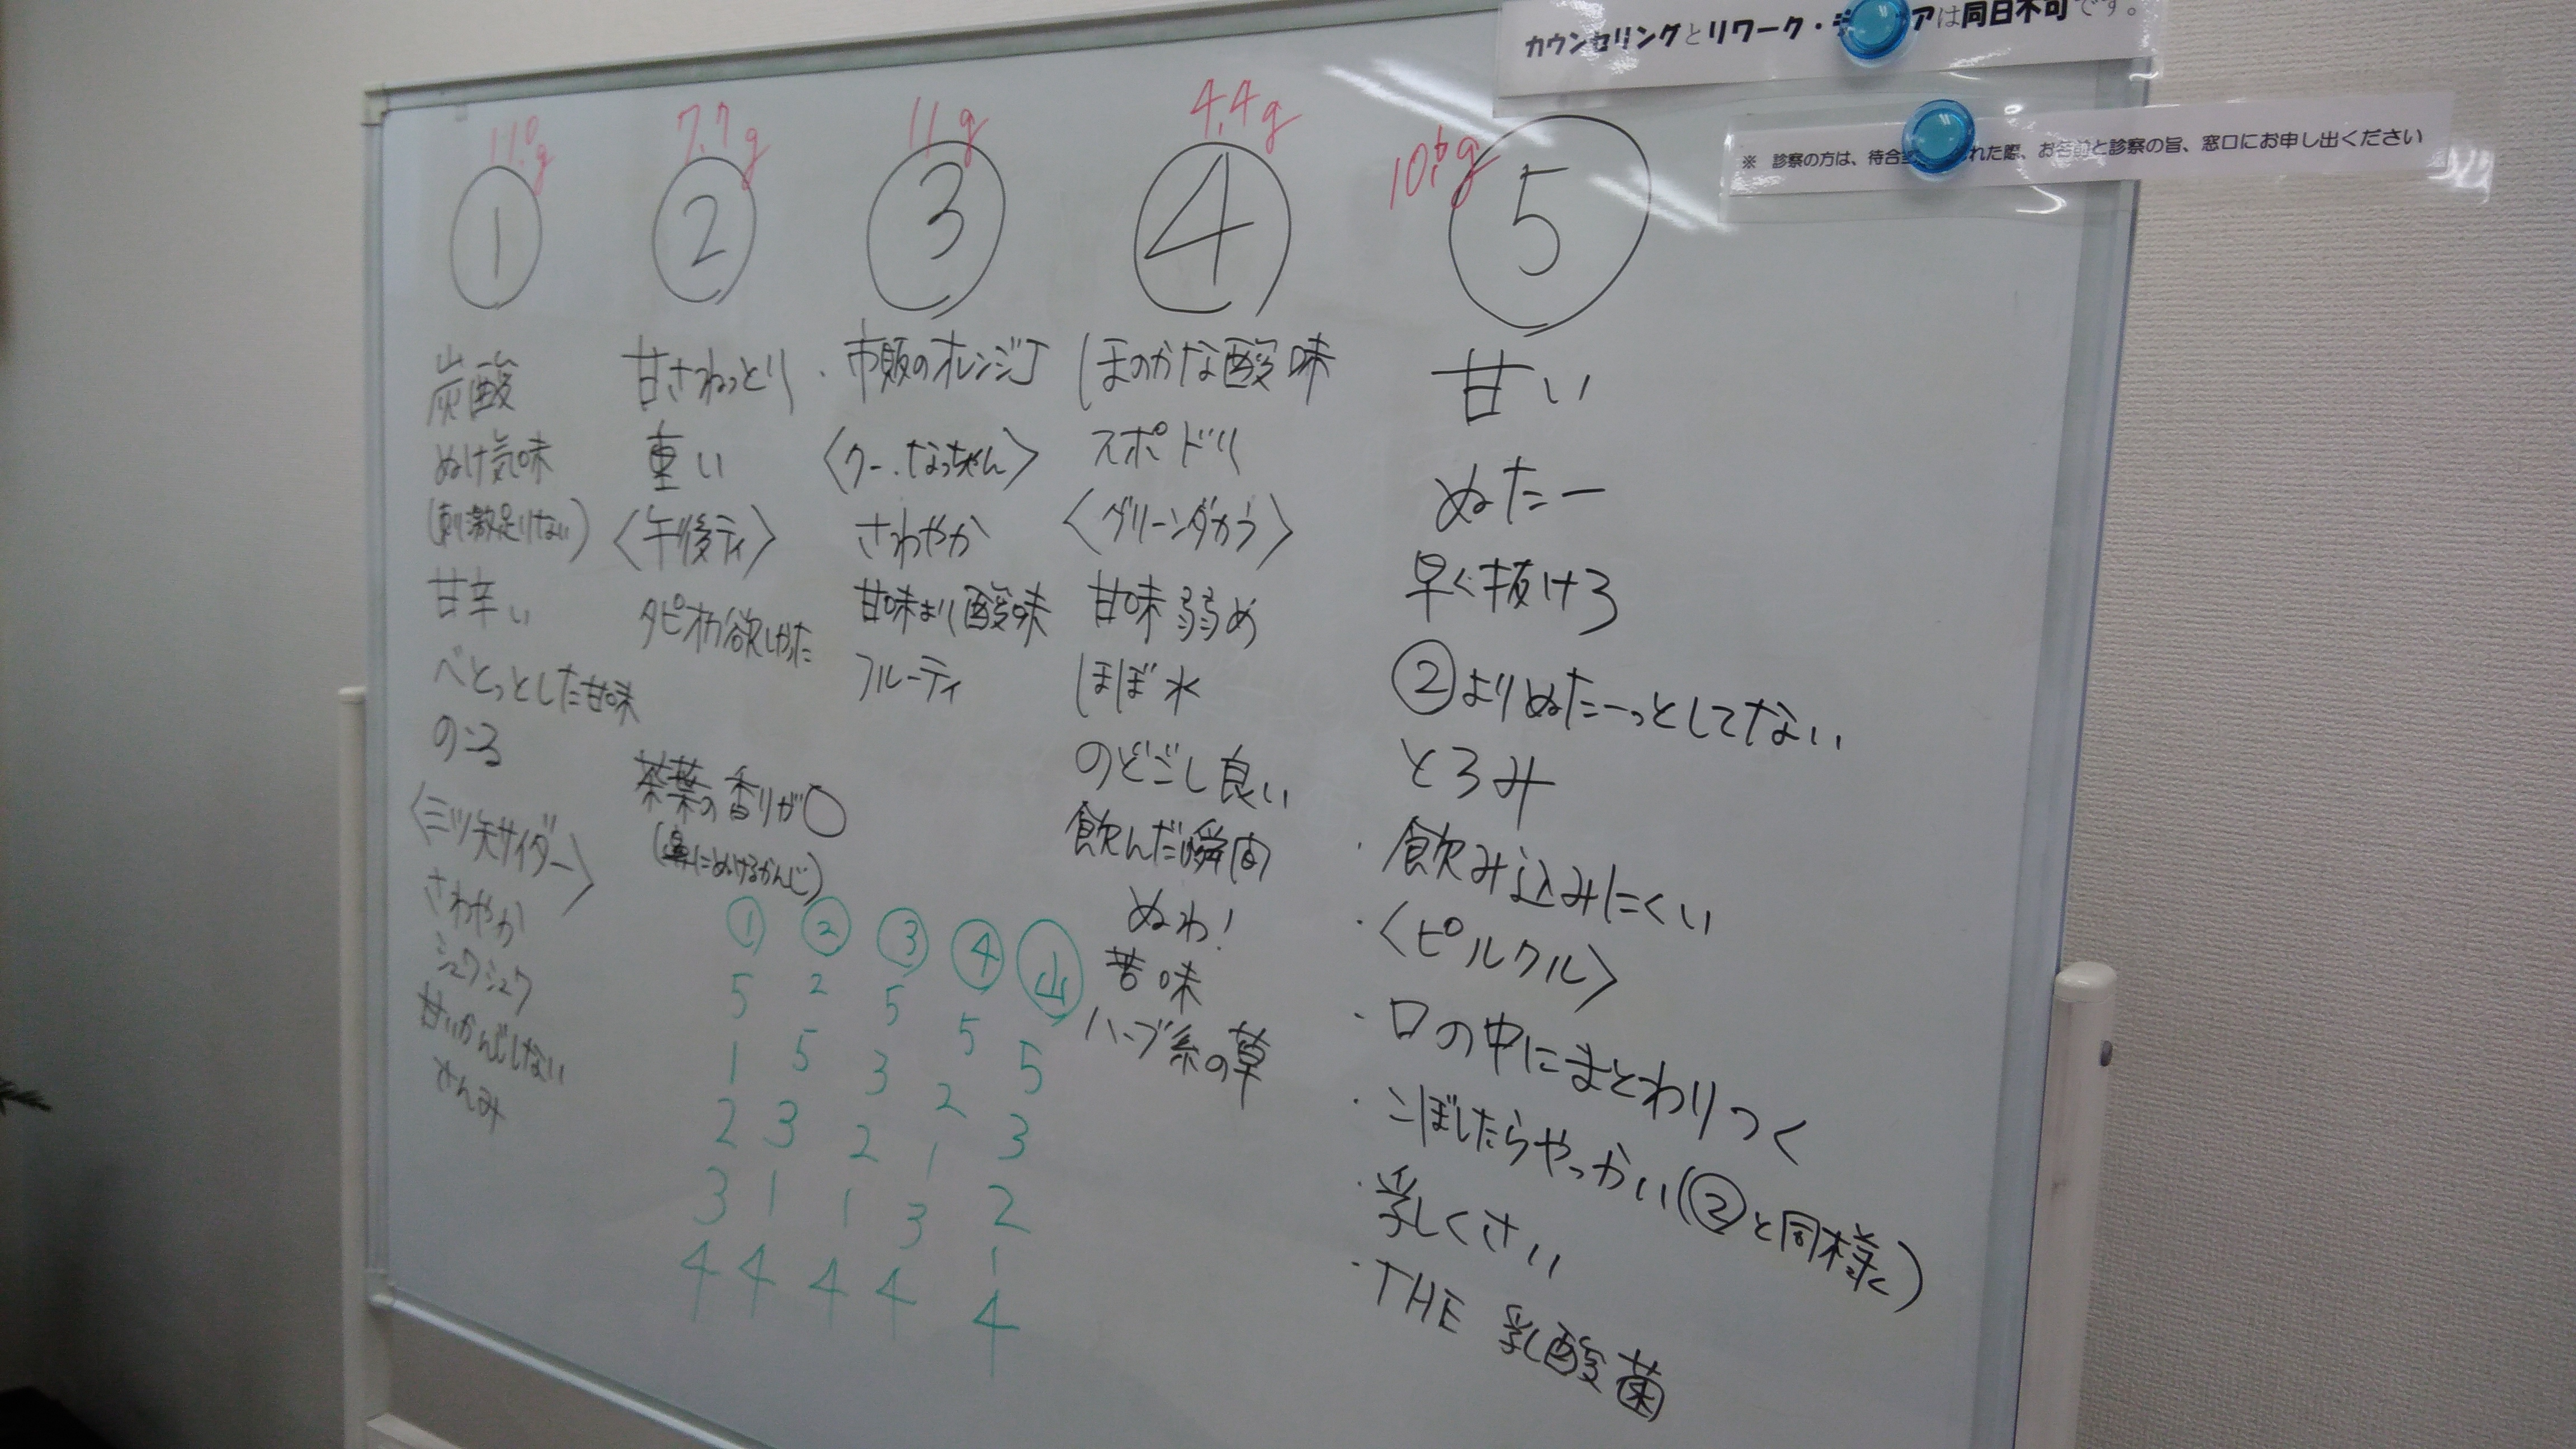 カウンセリングとリワーク・デ アは同日不可です。
※ 診察の方は、待合 れた際、お名前と診察の旨、窓口にお申し出ください
11.0g
①
炭酸
ぬけ気味
(刺激足りない)
甘辛い
べとっとした甘味
のこる
〈三ツ矢サイダー〉
さわやか
シュワシュワ
甘いかんじしない
さんみ
7.7g
②
甘さねっとり
重い
〈午後ティ〉
タピオカ欲しかった
茶葉の香りが〇
(鼻にぬけるかんじ)
11g
③
・市販のオレンジJ
〈クー、なっちゃん〉
さわやか
甘味より酸味
フルーティ
4.4g
④
ほのかな酸味
スポドリ
〈グリーンダカラ〉
甘味弱め
ほぼ水
のどごし良い
飲んだ瞬間
ぬわ!
苦味
ハーブ系の草
10.6g
⑤
甘い
ぬたー
早く抜けろ
②よりぬたーっとしてない
とろみ
・飲み込みにくい
・〈ピルクル〉
・口の中にまとわりつく
・こぼしたらやっかい(②と同様)
・乳くさい
・THE 乳酸菌
① ② ③ ④ 山
5 2 5 5 5
1 5 3 2 3
2 3 2 1 2
3 1 1 3 1
4 4 4 4 4